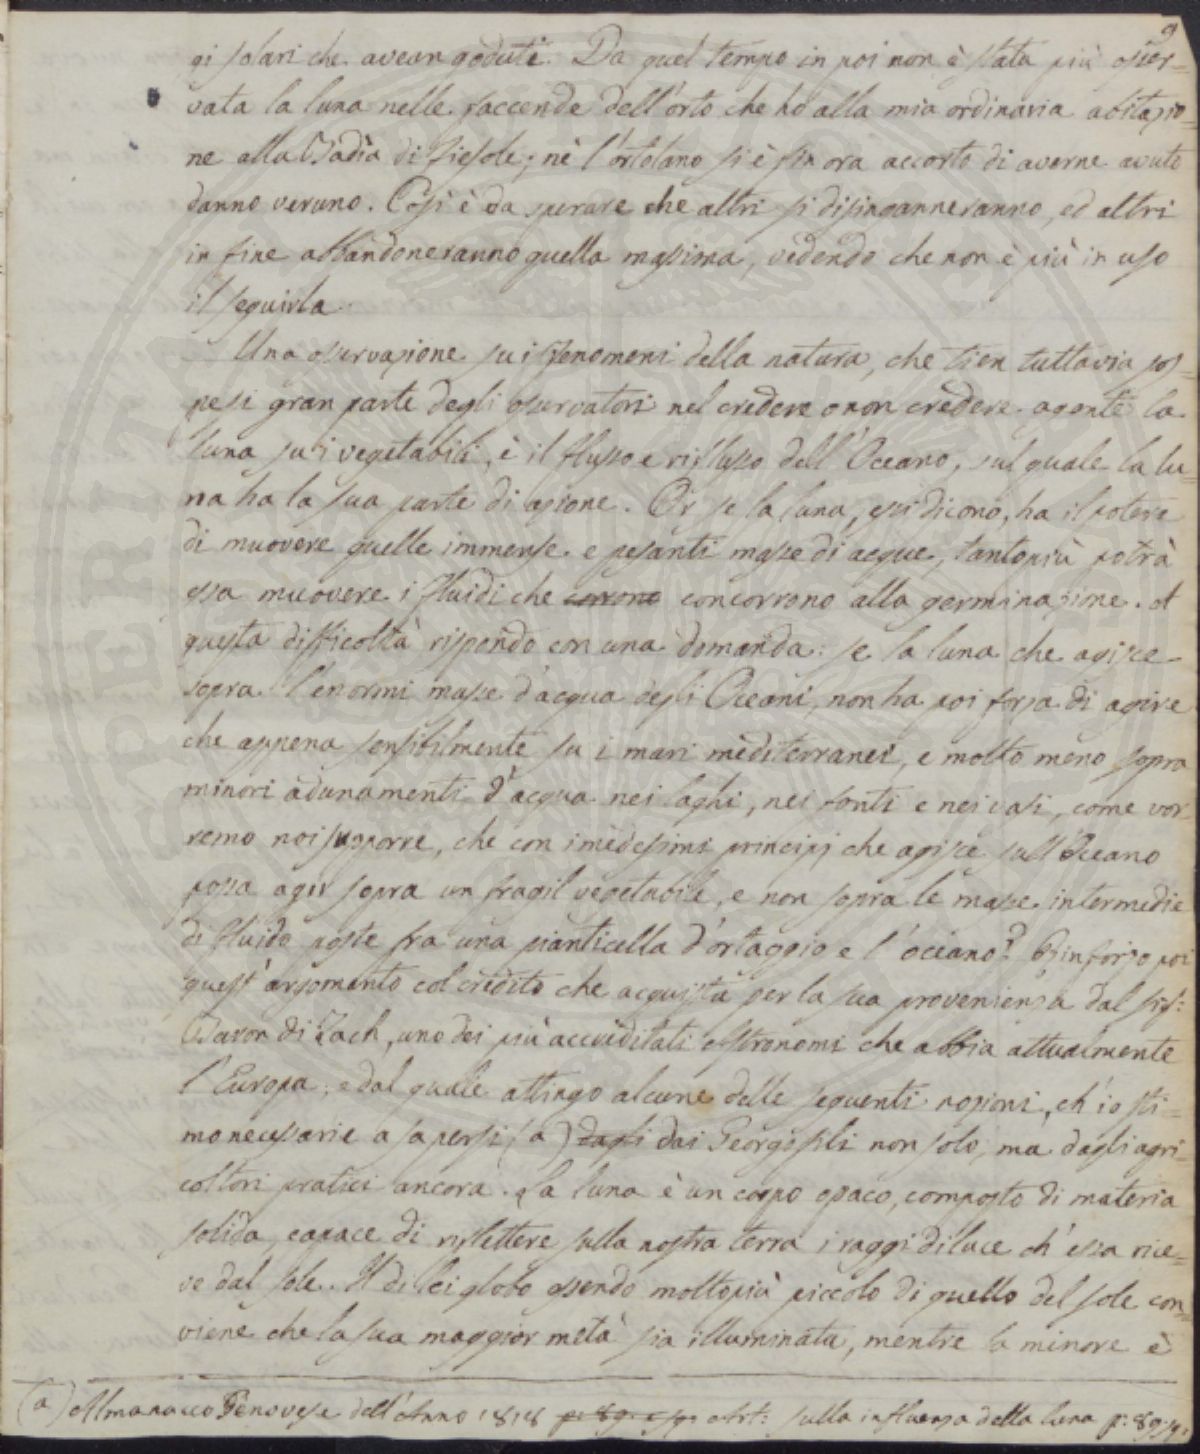 9
gi solari che avean goduti. Da quel tempo in poi non è stata più osser-
vata la luna nelle faccende dell'orto che ho alla mia ordinaria abitazio-
ne alla Badìa di Fiesole; nè l'ortolano si è fin ora accorto di averne avuto
danno veruno. Così è da sperare che altri si disinganneranno, ed altri
in fine abbandoneranno quella massima, vedendo che non è più in uso
il seguirla.
Una osservazione su i fenomeni della natura, che tien tuttavia sos-
pesi gran parte degli osservatori nel credere o non credere agente la
luna su i vegetabili, è il flusso e riflusso dell'Oceano, sul quale la lu-
na ha la sua parte di azione. Or se la luna, essi dicono, ha il potere
di muovere quelle immense e pesanti masse di acque, tantopiù potrà
essa muovere i fluidi che corrono concorrono alla germinazione. A
questa difficoltà rispondo con una domanda: se la luna che agisce
sopra l'enormi masse d'acqua degli Oceani, non ha poi forza di agire
che appena sensibilmente su i mari mediterranei, e molto meno sopra
minori adunamenti d'acqua nei laghi, nei fonti e nei vasi, come vor-
remo noi supporre, che con i medesimi principj che agisce sull'Oceano
possa agir sopra un fragil vegetabile, e non sopra le masse intermedie
di fluido poste fra una pianticella d'ortaggio e l'oceano? Rinforzo poi
quest'argomento col credito che acquista per la sua provenienza dal sig:
Baron di Zach, uno dei più accreditati Astronomi che abbia attualmente
l'Europa; e dal quale attingo alcune delle seguenti nozioni, ch'io sti-
mo necessarie a sapersi (a) dagli dai Georgofili non solo, ma dagli agri-
coltori pratici ancora. La luna è un corpo opaco, composto di materia
solida, capace di riflettere sulla nostra terra i raggi di luce ch'essa rice-
ve dal sole. Il di lei globo essendo moltopiù piccolo di quello del sole con-
viene che la sua maggior metà sia illuminata, mentre la minore è
(a) Almanacco Genovese dell'Anno 1818 p: 89. e sg: Art: sulla influenza della luna p: 89. sg: